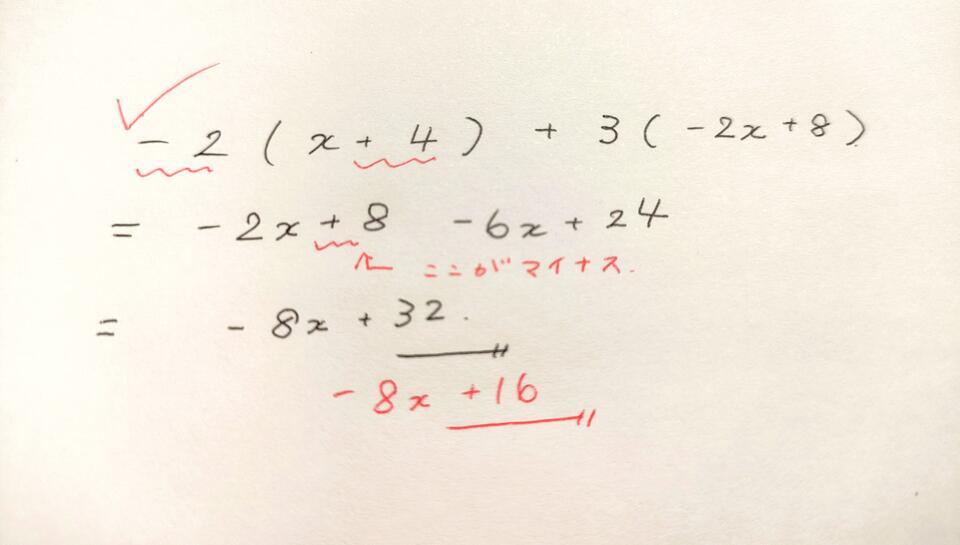 - 2 ( x + 4 ) + 3 ( - 2x + 8 )
= - 2x + 8 - 6x + 24
ここがマイナス.
= - 8x + 32.
- 8x + 16